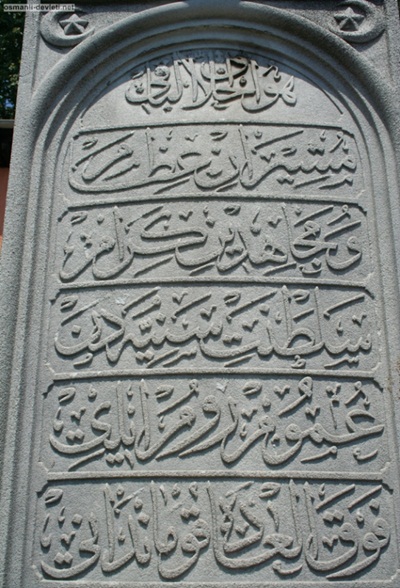 osmanli-devleti.net
هو الخلاق الباقي
مشيران عظام
و مجاهدين كرامدن
سلطنت سنيه
عموم روم ايلى
فوق العاده قوماندانى